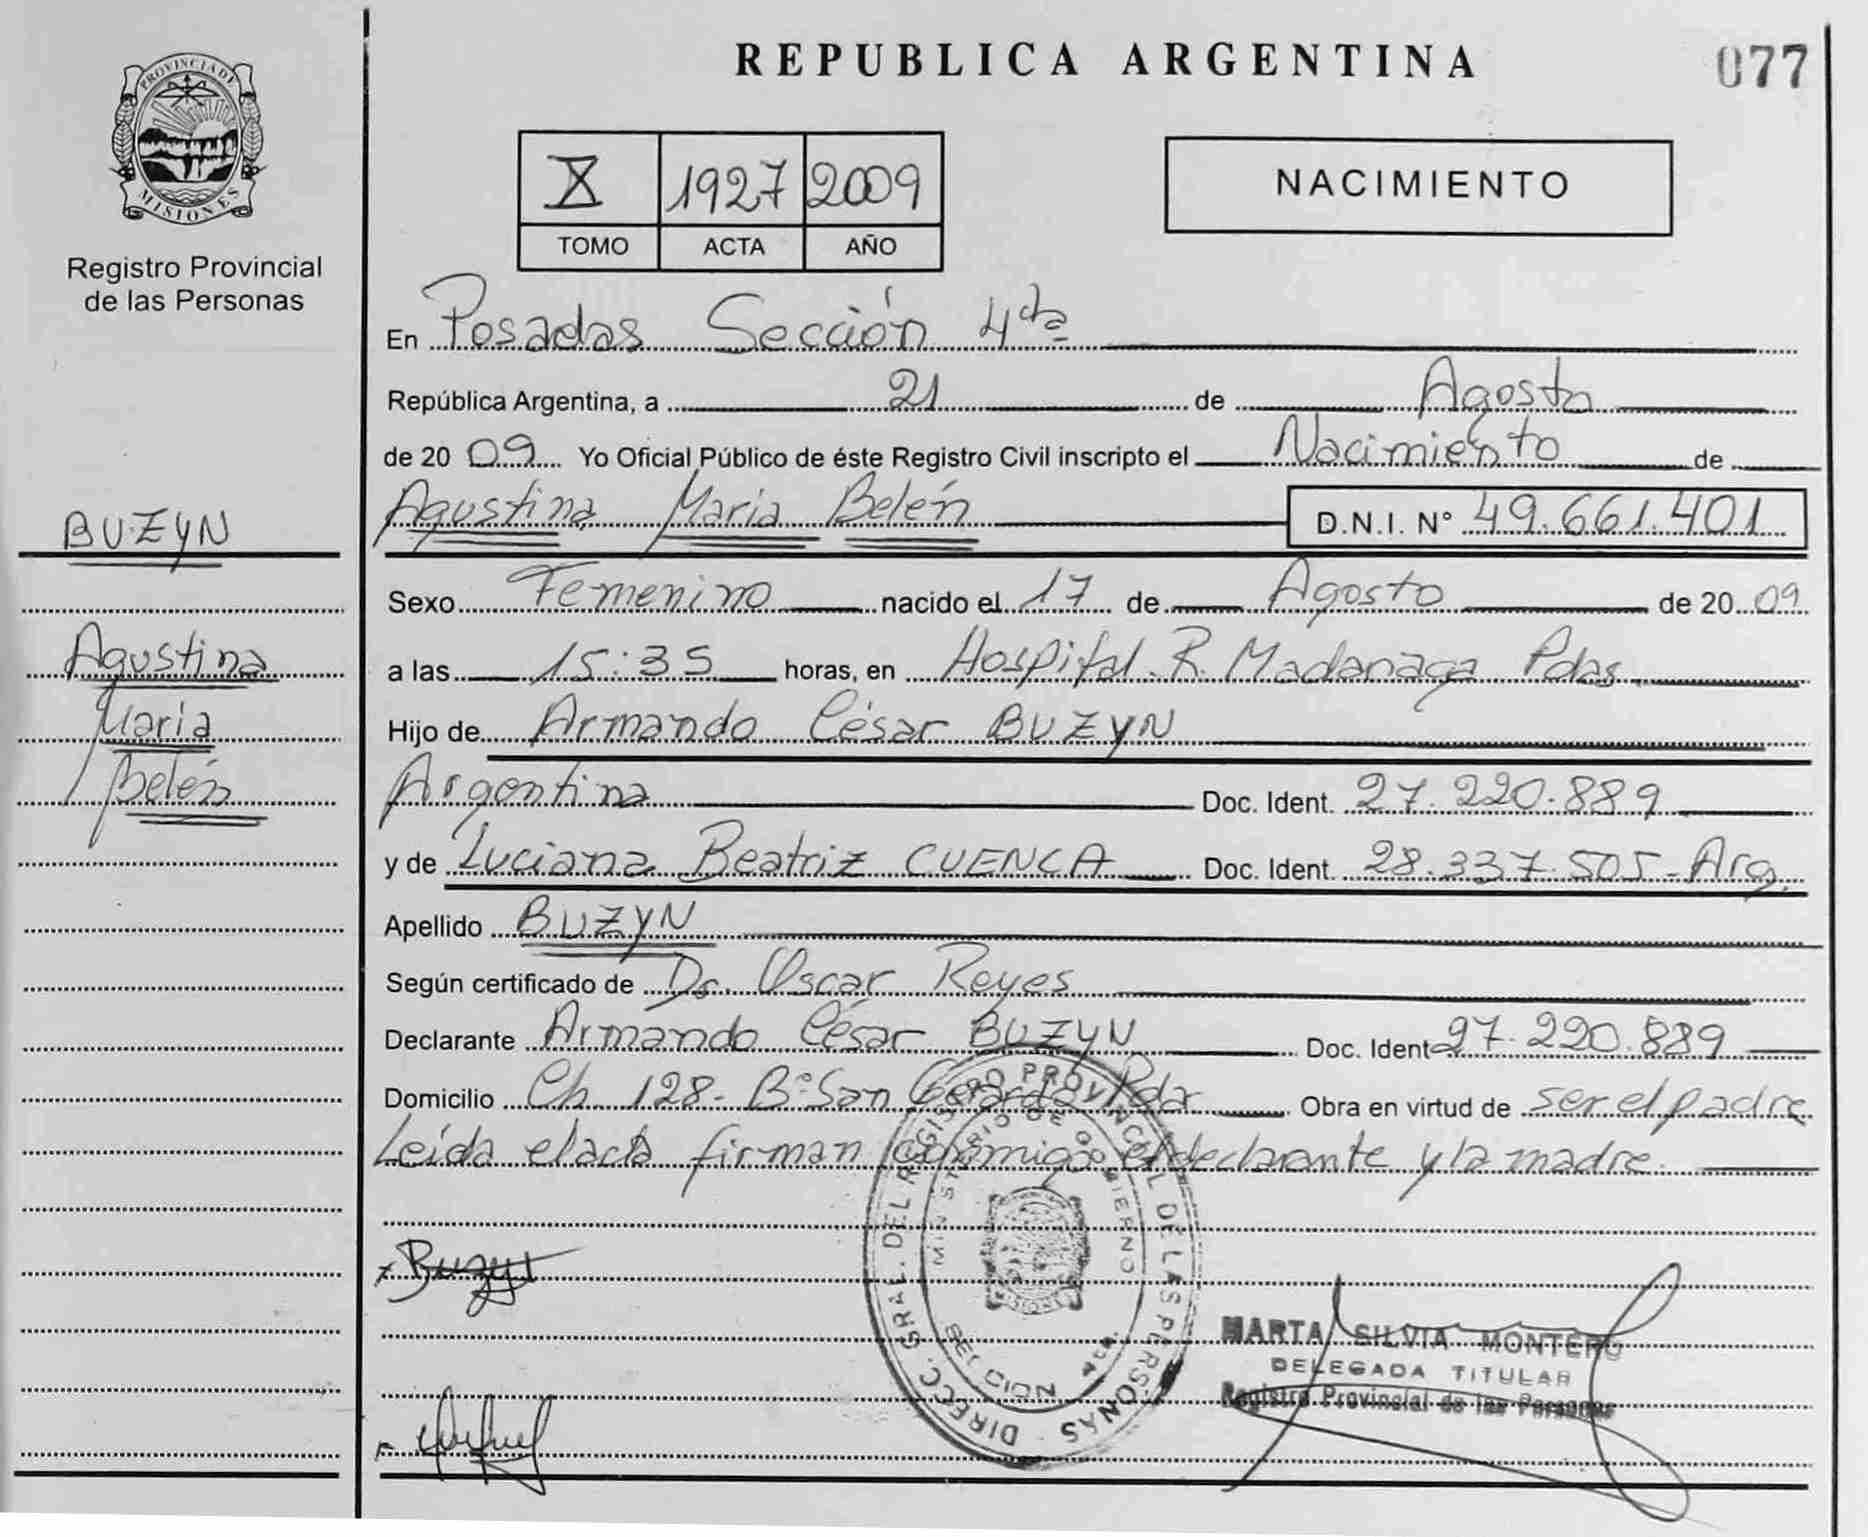 REPUBLICA ARGENTINA
077
PROVINCIA DE
MISIONES
Registro Provincial
de las Personas
X 1927 2009
TOMO ACTA AÑO
NACIMIENTO
En Posadas Sección 4ta
República Argentina, a 21 de Agosto
de 2009 Yo Oficial Público de éste Registro Civil inscripto el Nacimiento de
Agustina Maria Belén D.N.I. N° 49.661.401
BUZYN
Agustina
Maria
Belén
Sexo Femenino nacido el 17 de Agosto de 2009
a las 15:35 horas, en Hospital R. Madariaga Pdas.
Hijo de Armando César BUZYN
Argentina Doc. Ident. 27.220.889
y de Luciana Beatriz CUENCA Doc. Ident. 28.337.505-Arg.
Apellido BUZYN
Según certificado de Dr. Oscar Reyes
Declarante Armando César BUZYN Doc. Ident 27.220.889
Domicilio Ch. 128- B° San Gerardo Pdas Obra en virtud de ser el padre
Leída el acta firman conmigo el declarante y la madre.
DIRECC. GRAL. DEL REGISTRO PROVINCIAL DE LAS PERSONAS
MINISTERIO DE GOBIERNO
Buzyn
MARTA SILVIA MONTERO
DELEGADA TITULAR
Registro Provincial de las Personas